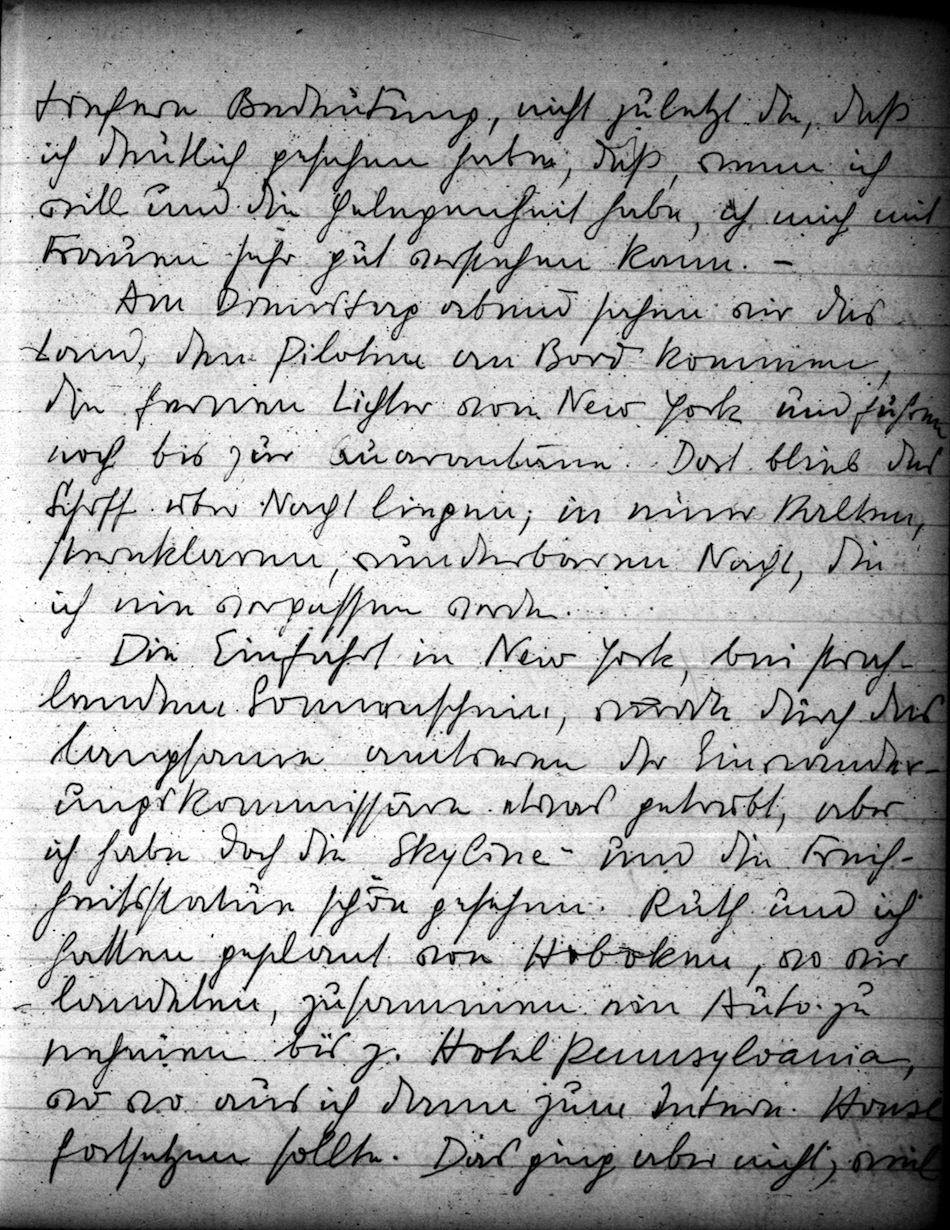 tiefere Bedeutung, nicht zuletzt die, daß
ich deutlich gesehen habe, daß, wenn ich
will und die Gelegenheit habe, ich mich mit
Frauen sehr gut verstehen kann. –
Am Donnerstag abend sahen wir das
Land, den Piloten an Bord kommen,
die fernen Lichter von New York und fuhren
noch bis zur Quarantäne. Dort blieb das
Schiff über Nacht liegen, in einer kalten,
sternklaren, wunderbaren Nacht, die
ich nie vergessen werde.
Die Einfahrt in New York, bei strah-
lendem Sonnenschein, wurde durch das
langsame amtieren der Einwander-
ungskommissäre etwas getrübt, aber
ich habe doch die Skyline – und die Frei-
heitsstatue schön gesehen. Ruth und ich
hatten geplant von Hoboken, wo wir
landeten, zusammen ein Auto zu
nehmen bis z. Hotel Pennsylvania,
wo aus ich dann zum Intern. House
fortsetzen sollte. Das ging aber nicht, weil